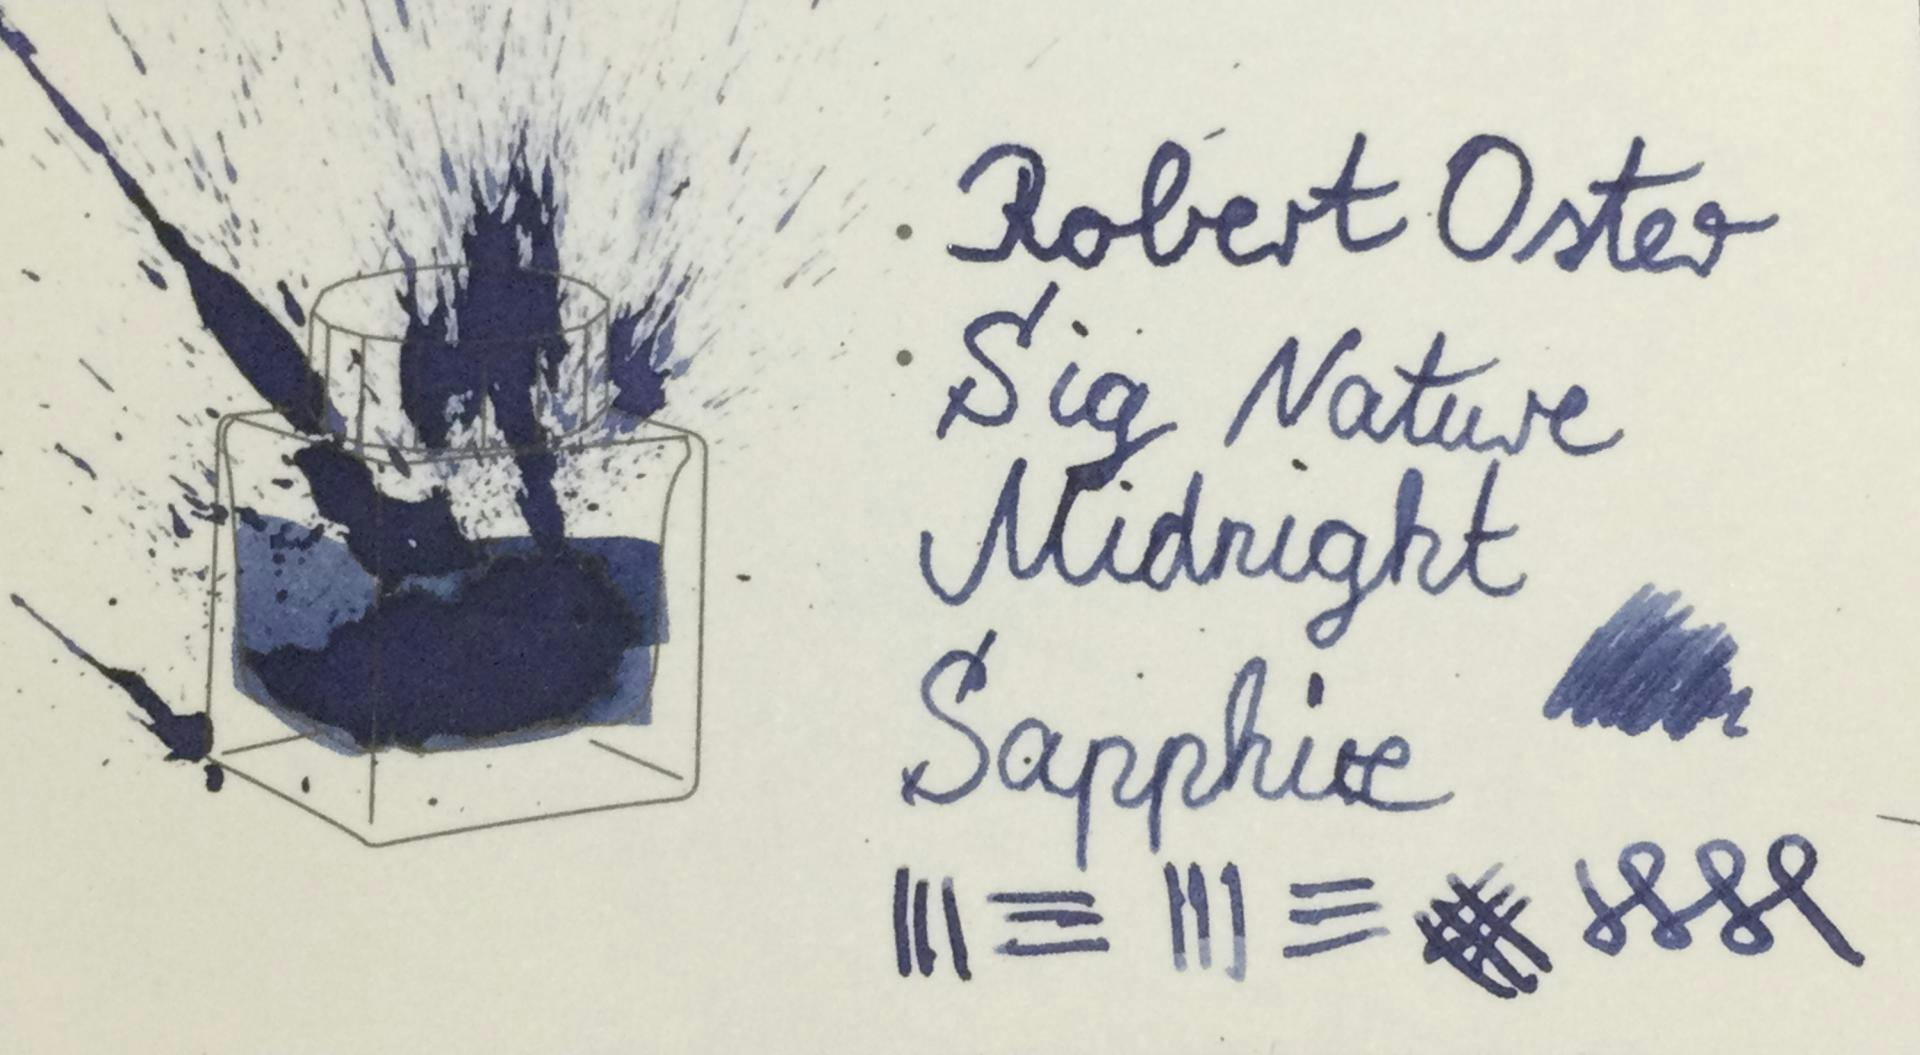 Robert Oster
Sig Nature
Midnight
Sapphire